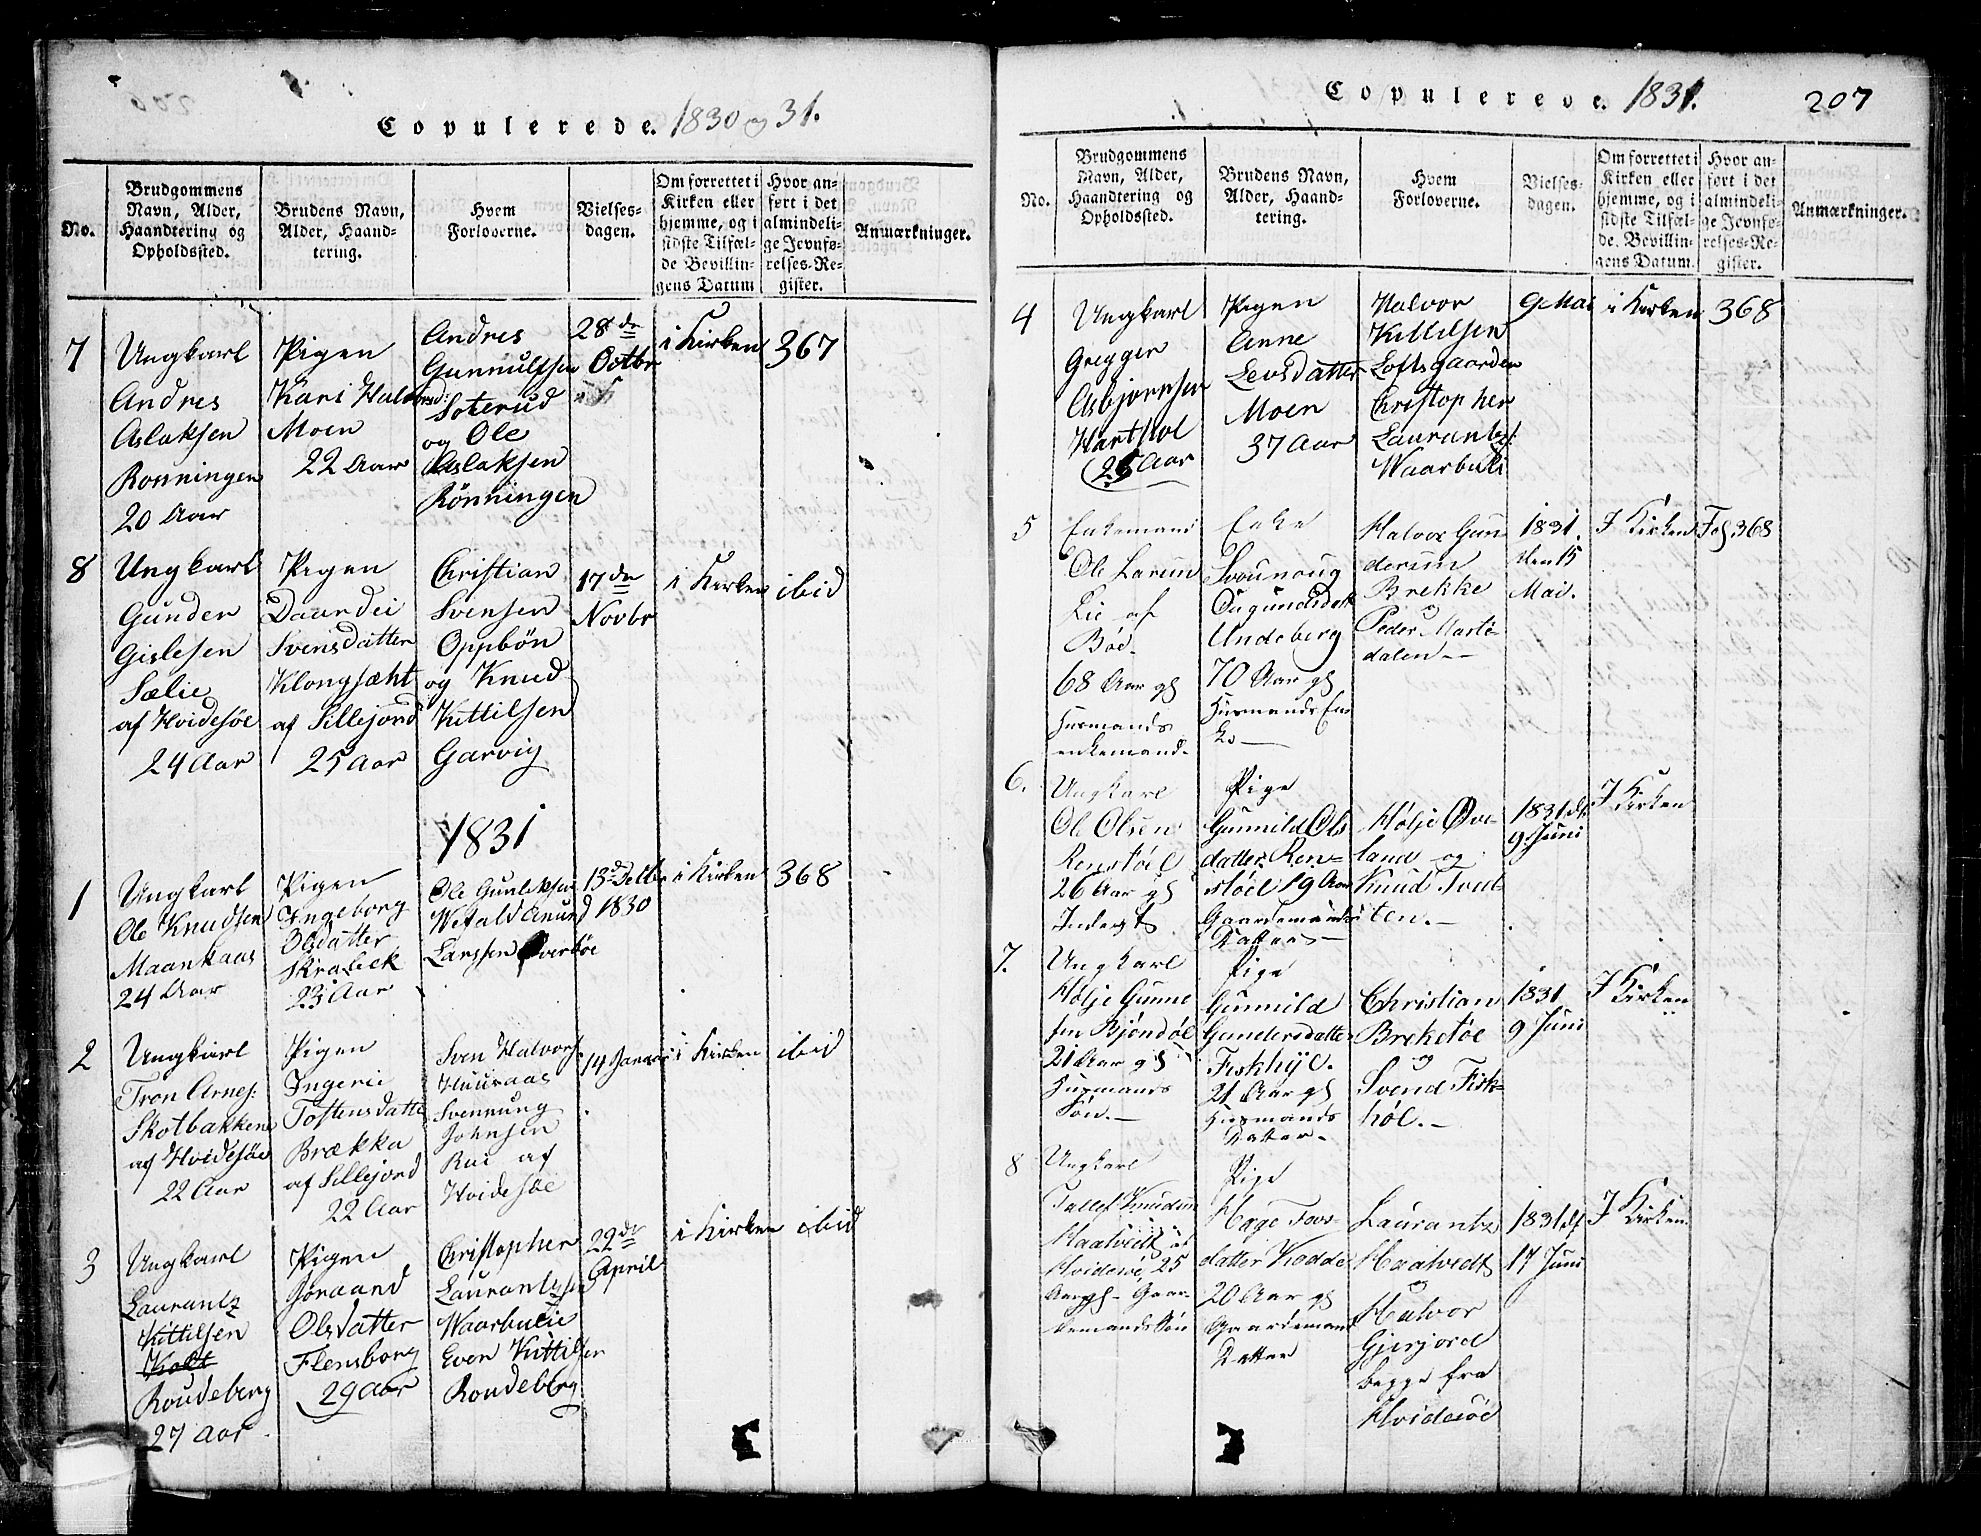 Copulerede. 1830 og 31.
No.
Brudgommens
Navn, Alder,
Haandtering og
Opholdssted.
Brudens Navn,
Alder, Haand-
tering.
Hvem
Forloverne.
Vielses-
dagen.
Om forrettet i
Kirken eller
hjemme, og i
sidste Tilfæl-
de Bevillin-
gens Datum
Hvor an-
ført i det
almindeli-
ge Jevnfø-
relses-Re-
gister.
Anmærkninger.
7
Ungkarl
Andres
Aslaksen
Rønningen
20 Aar
Pigen
Kari Halvorsd:
Moen
22 Aar
Andres
Gunnulfsen
Soterud
og Ole
Aslaksen
Rönningen
28de
Octbr
i Kirken
367
8
Ungkarl
Gunder
Gislesen
Sælie
af Hvidesøe
24 Aar
Pigen
Daardei
Svensdatter
Klongsæht
af Sillejord
25 Aar
Christian
Svensen
Oppbön
og Knud
Kittilsen
Garvig
17de
Novbr
i Kirken
ibid
1831
1
Ungkarl
Ole Knudsen
Maankaas
24 Aar
Pigen
Ingeborg
Olsdatter
Skrabek
23 Aar
Ole Gunleksen
Wefald Anund
Larssen Øverbøe
13de Decbr
1830
i Kirken
368
2
Ungkarl
Tron Arnes:
Skotbakken
af Hvidesøe
22 Aar
Pigen
Ingerie
Tostensdatter
Brækka
af Sillejord
22 Aar
Sven Halvors
Huuraas
Svennung
Johnsen
Rui af
Hvidesøe
14 Januar
i Kirken
ibid
3
Ungkarl
Laurantz
Kittilsen
Kolt
Roudeberg
27 Aar
Pigen
Joraand
Olsdatter
Flensborg
29 Aar
Christopher
Laurantzsen
Waarbulie
Even Kittilsen
Roudeberg
22de
April
i Kirken
ibid
Copulerede. 1831.
207
No.
Brudgommens
Navn, Alder,
Haandtering og
Opholdssted.
Brudens Navn,
Alder, Haand-
tering.
Hvem
Forloverne.
Vielses-
dagen.
Om forrettet i
Kirken eller
hjemme, og i
sidste Tilfæl-
de Bevillin-
gens Datum.
Hvor an-
ført i det
almindeli-
ge Jevnfø-
relses-Re-
gister.
Anmærkninger.
4
Ungkarl
Gregger
Asbjørnsen
Harthol
25 Aar
Pigen
Anne
Levsdatter
Moen
37 Aar
Halvor
Kittilsen
Loftsgaarden
Christopher
Laurantzs:
Waarbuli
9 Mai
i Kirken
368
5
Enkemand
Ole Larsen
Lie af
Böe.
68 Aar gl
Husmands
enkemand.
Enke
Svounoug
Undeberg
70 Aar gl
Husmands En-
ke
Halvor Gun-
dersen
Brekke
og
Peder Marte-
dalen
1831.
den 15
Mai.
I Kirken
Fol 368
6.
Ungkarl
Ole Olsen
Renstöel
26 Aar gl
Inderst
Pige
Gunnild Ols
datter Ren-
støel 19 Aar
Gaardemands
Datter
Hølje Øve-
land og
Knud Tved-
ten.
1831 d.
9 Juni
I Kirken
7.
Ungkarl
Hølje Gunne
sen Bjöndöl
21 Aar gl
Husmands
Sön.
Pige
Gunnild
Gundersdatter
Fiskhyl.
21 Aar gl
Husmands
Datter.
Christian
Breketøe
og
Svend Fisk-
høl.
1831
9 Juni
I Kirken
8
Ungkarl
Tallef Knudsen
Haatvedt af
Hvidesöe, 25
Aar gl - Gaar-
demands Sön
Pige
Hæge Tovs-
datter Kodde
20 Aar gl
Gaardemands
Datter
Laurantz
Haatvedt
og
Halvor
Gjerjord
begge fra
Hvidesöe
1831 d.
17 Juni
I Kirken.